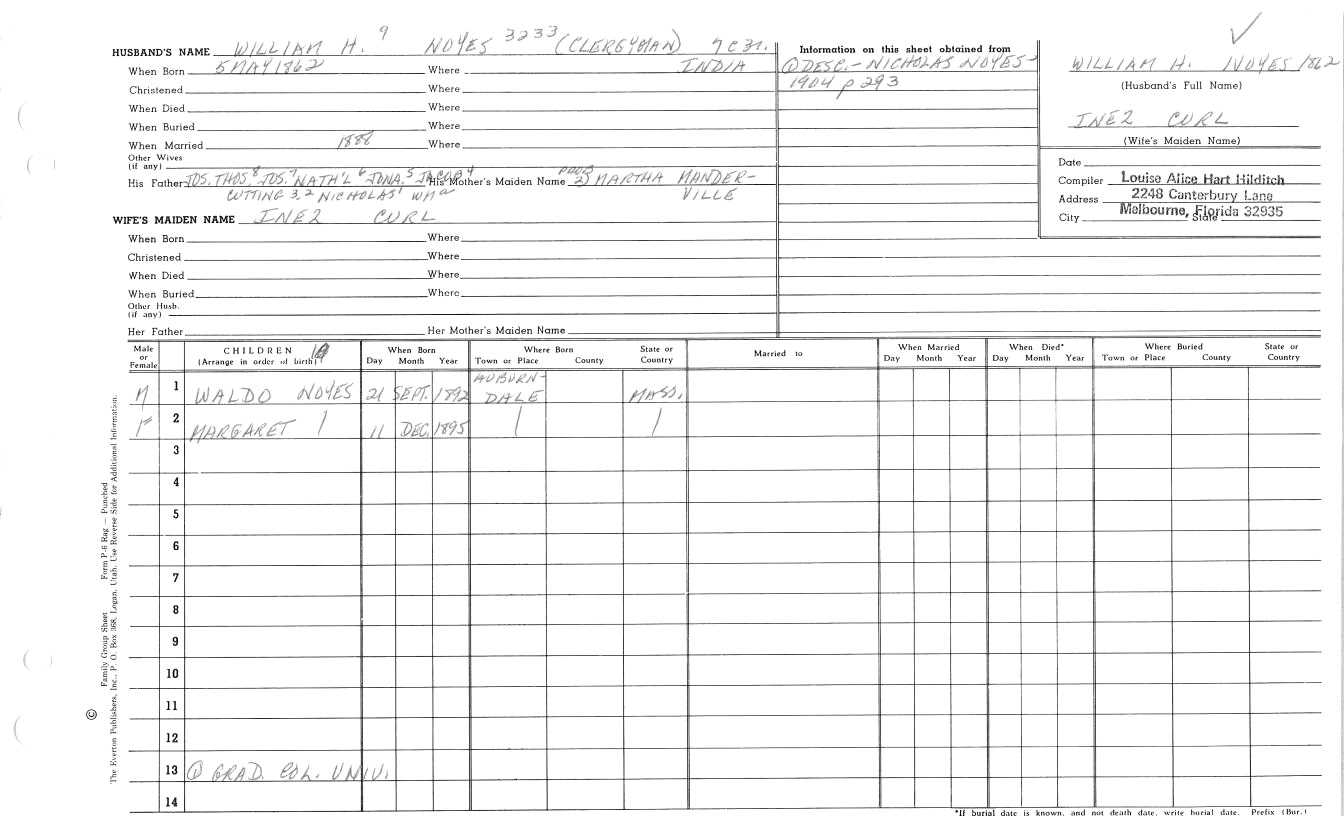 HUSBAND'S NAME WILLIAM H. 9 NOYES 3233 (CLERGYMAN) 7 C 31.
When Born 5 MAY 1862 Where INDIA
Christened Where
When Died Where
When Buried Where
When Married 1888 Where
Other Wives
(if any)
His Father JOS. THOS. 8 JOS. 7 NATH'L 6 JONA. 5 JACOB 4 His Mother's Maiden Name 2) MARTHA MANDER-
CUTTING 3, 2 NICHOLAS 1 WM a VILLE
WIFE'S MAIDEN NAME INEZ CURL
When Born Where
Christened Where
When Died Where
When Buried Where
Other Husb.
(if any)
Her Father Her Mother's Maiden Name
Information on this sheet obtained from
① DESC. - NICHOLAS NOYES -
1904 p 293
✓
WILLIAM H. NOYES 1862
(Husband's Full Name)
INEZ CURL
(Wife's Maiden Name)
Date
Compiler Louise Alice Hart Hilditch
Address 2248 Canterbury Lane
City Melbourne, Florida 32935 State
Male or Female
CHILDREN 10
(Arrange in order of birth)
When Born
Day Month Year
Where Born
Town or Place County State or Country
Married to
When Married
Day Month Year
When Died*
Day Month Year
Where Buried
Town or Place County State or Country
M 1 WALDO NOYES 21 SEPT. 1892 AUBURN-DALE MASS.
F 2 MARGARET | 11 DEC. 1895 | |
3
4
5
6
7
8
9
10
11
12
13 ① GRAD. COL. UNIV.
14
*If burial date is known, and not death date, write burial date. Prefix (Bur.)
© Family Group Sheet Form P-8 Rag — Punched
The Everton Publishers, Inc., P. O. Box 368, Logan, Utah. Use Reverse Side for Additional Information.